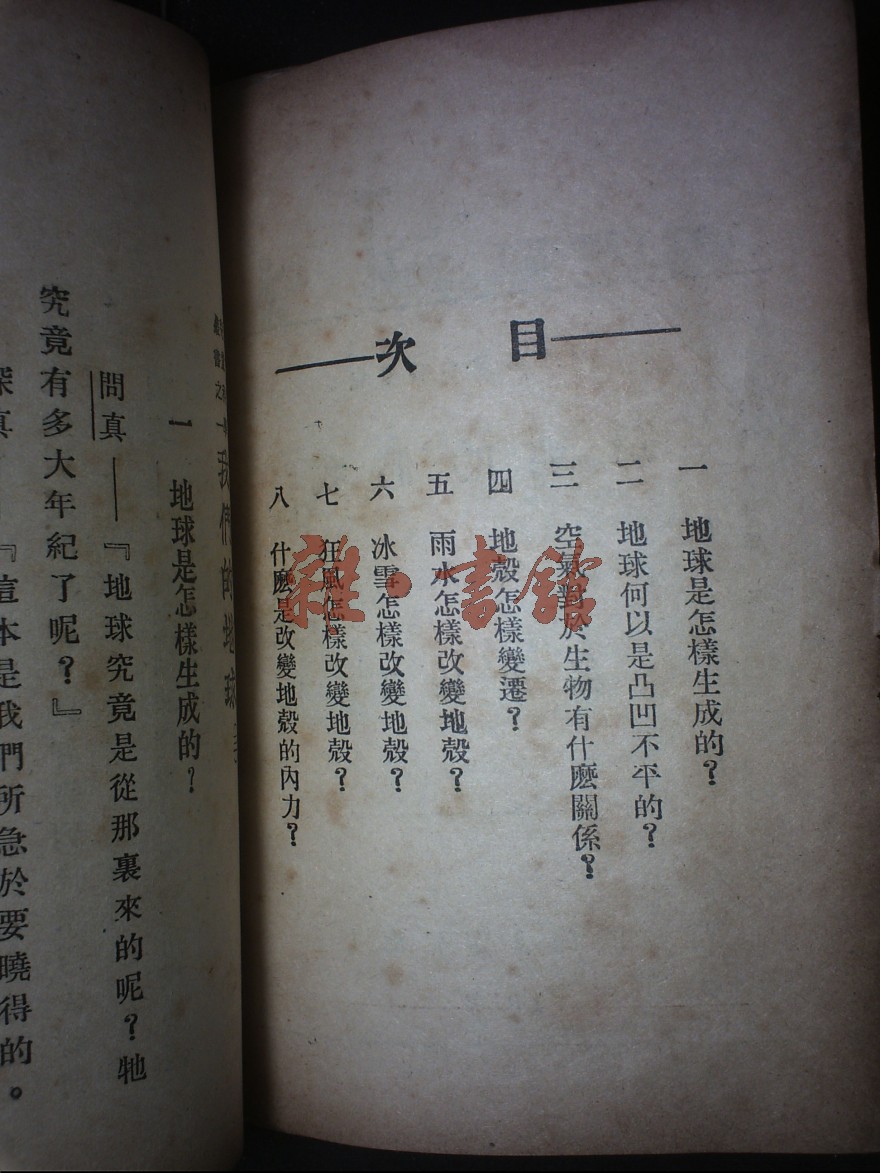 目次
一 地球是怎樣生成的？
二 地球何以是凸凹不平的？
三 空氣對於生物有什麽關係？
四 地殼怎樣變遷？
五 雨水怎樣改變地殼？
六 冰雪怎樣改變地殼？
七 狂風怎樣改變地殼？
八 什麽是改變地殼的內力？
我們的地球
一 地球是怎樣生成的？
問真——『地球究竟是從那裏來的呢？牠
究竟有多大年紀了呢？』
『這本是我們所急於要曉得的。
雜·書館